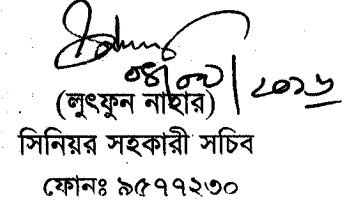 ০৪|০৭|২০১৬
(লুৎফুন নাহার)
সিনিয়র সহকারী সচিব
ফোনঃ ৯৫৭৭২৩০